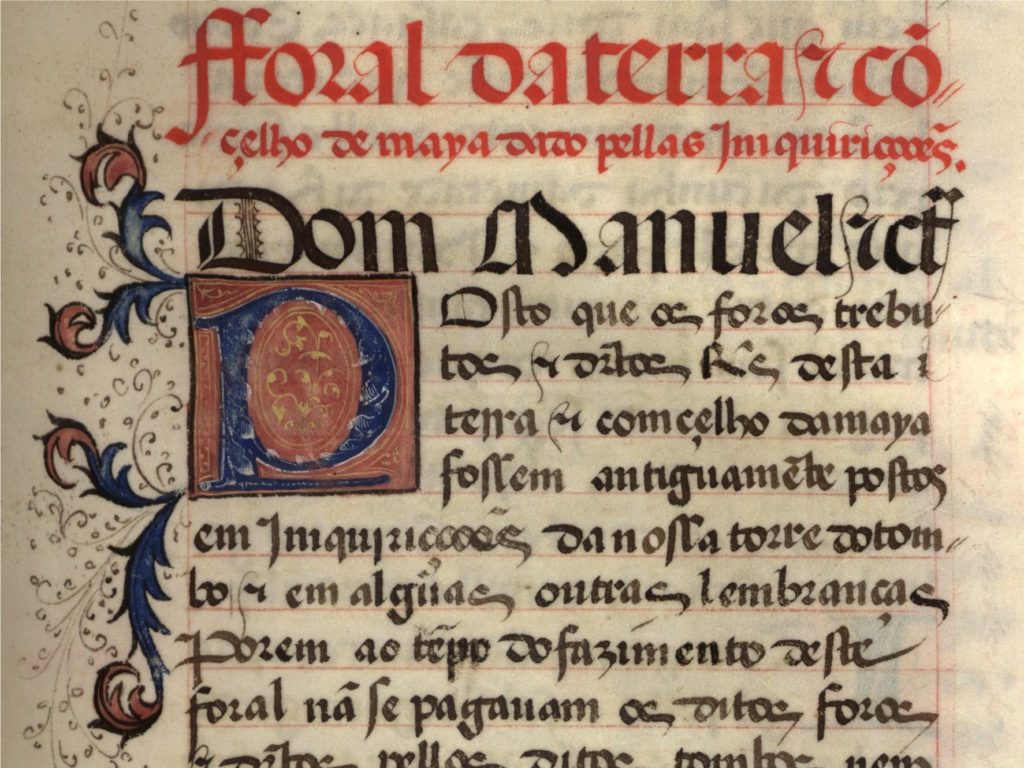 fforal da terra ⁊ cõ-
çelho de maya dado pellas Jmquiriçoões.
Dom Manuel ⁊cť
Posto que os foros trebu-
tos ⁊ dr̃tos Rẽs desta
terra ⁊ comçelho da maya
fossem antiguamẽte postos
em Jmquiriçoões da nossa torre do tom-
bo ⁊ em algũas outras lembranças
Porem ao tẽpo do fazimento deste
foral nã se pagauam os ditos foros
⁊ dr̃tos pellos ditos tombos nem